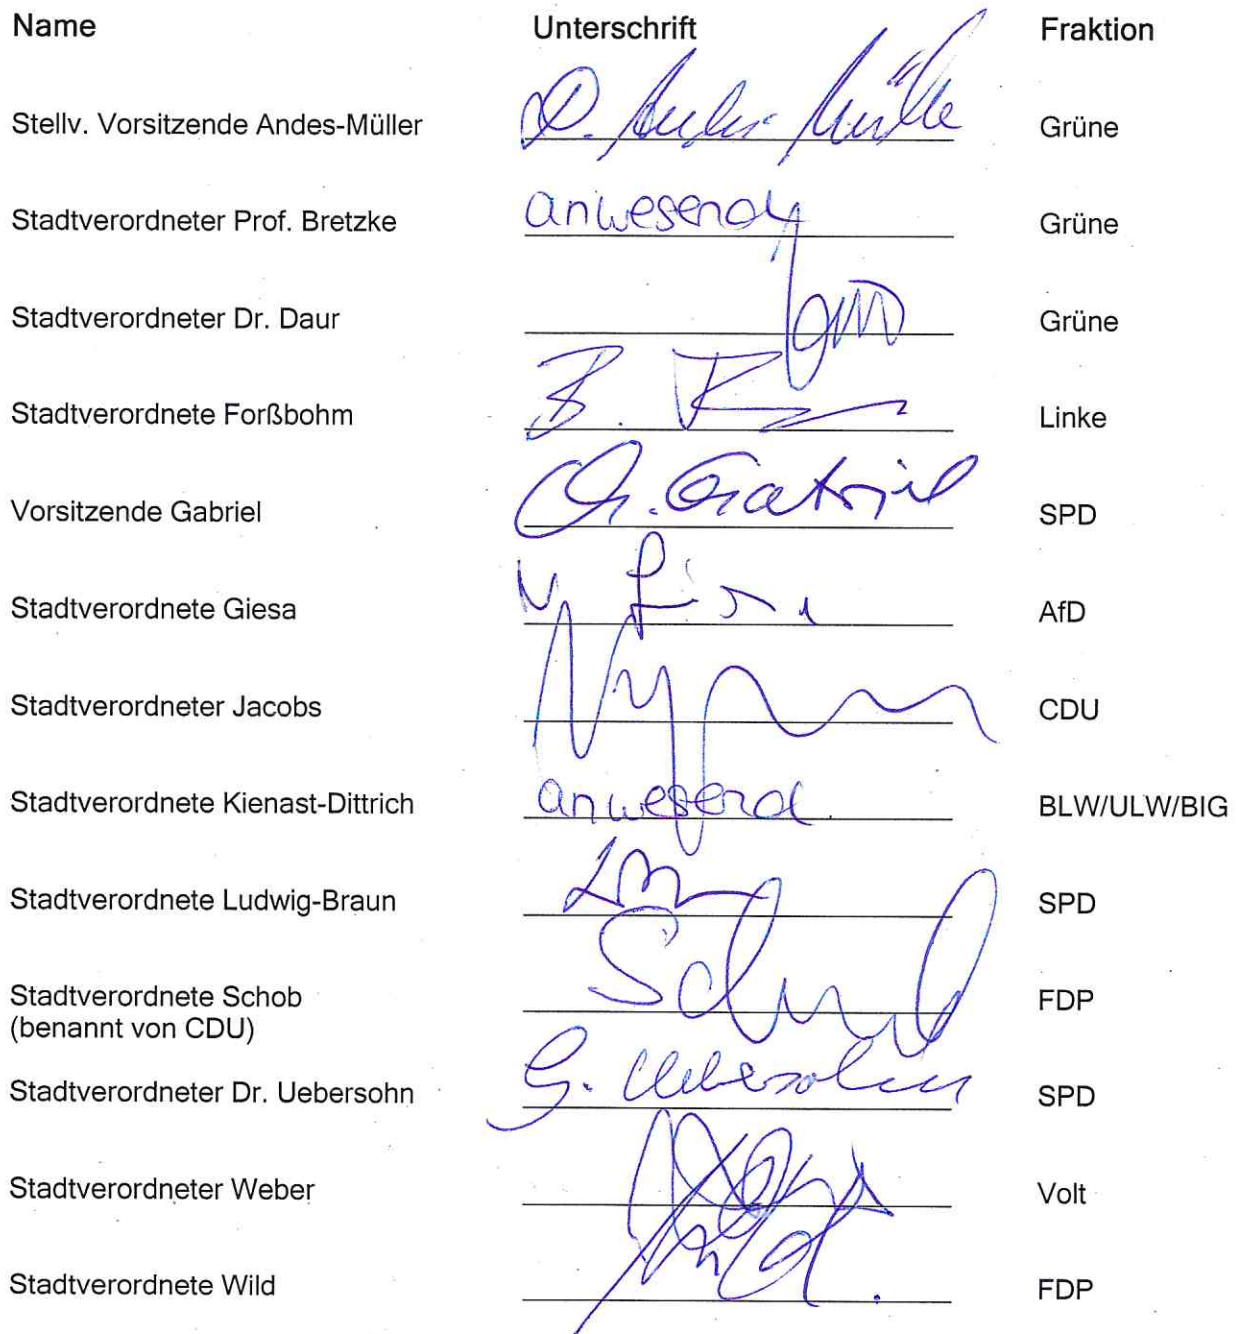 Name Unterschrift Fraktion
Stellv. Vorsitzende Andes-Müller D. Andes-Müller Grüne
Stadtverordneter Prof. Bretzke anwesend Grüne
Stadtverordneter Dr. Daur Grüne
Stadtverordnete Forßbohm B. Linke
Vorsitzende Gabriel Ch. Gabriel SPD
Stadtverordnete Giesa AfD
Stadtverordneter Jacobs CDU
Stadtverordnete Kienast-Dittrich anwesend BLW/ULW/BIG
Stadtverordnete Ludwig-Braun SPD
Stadtverordnete Schob Schob FDP
(benannt von CDU)
Stadtverordneter Dr. Uebersohn G. Uebersohn SPD
Stadtverordneter Weber Volt
Stadtverordnete Wild FDP